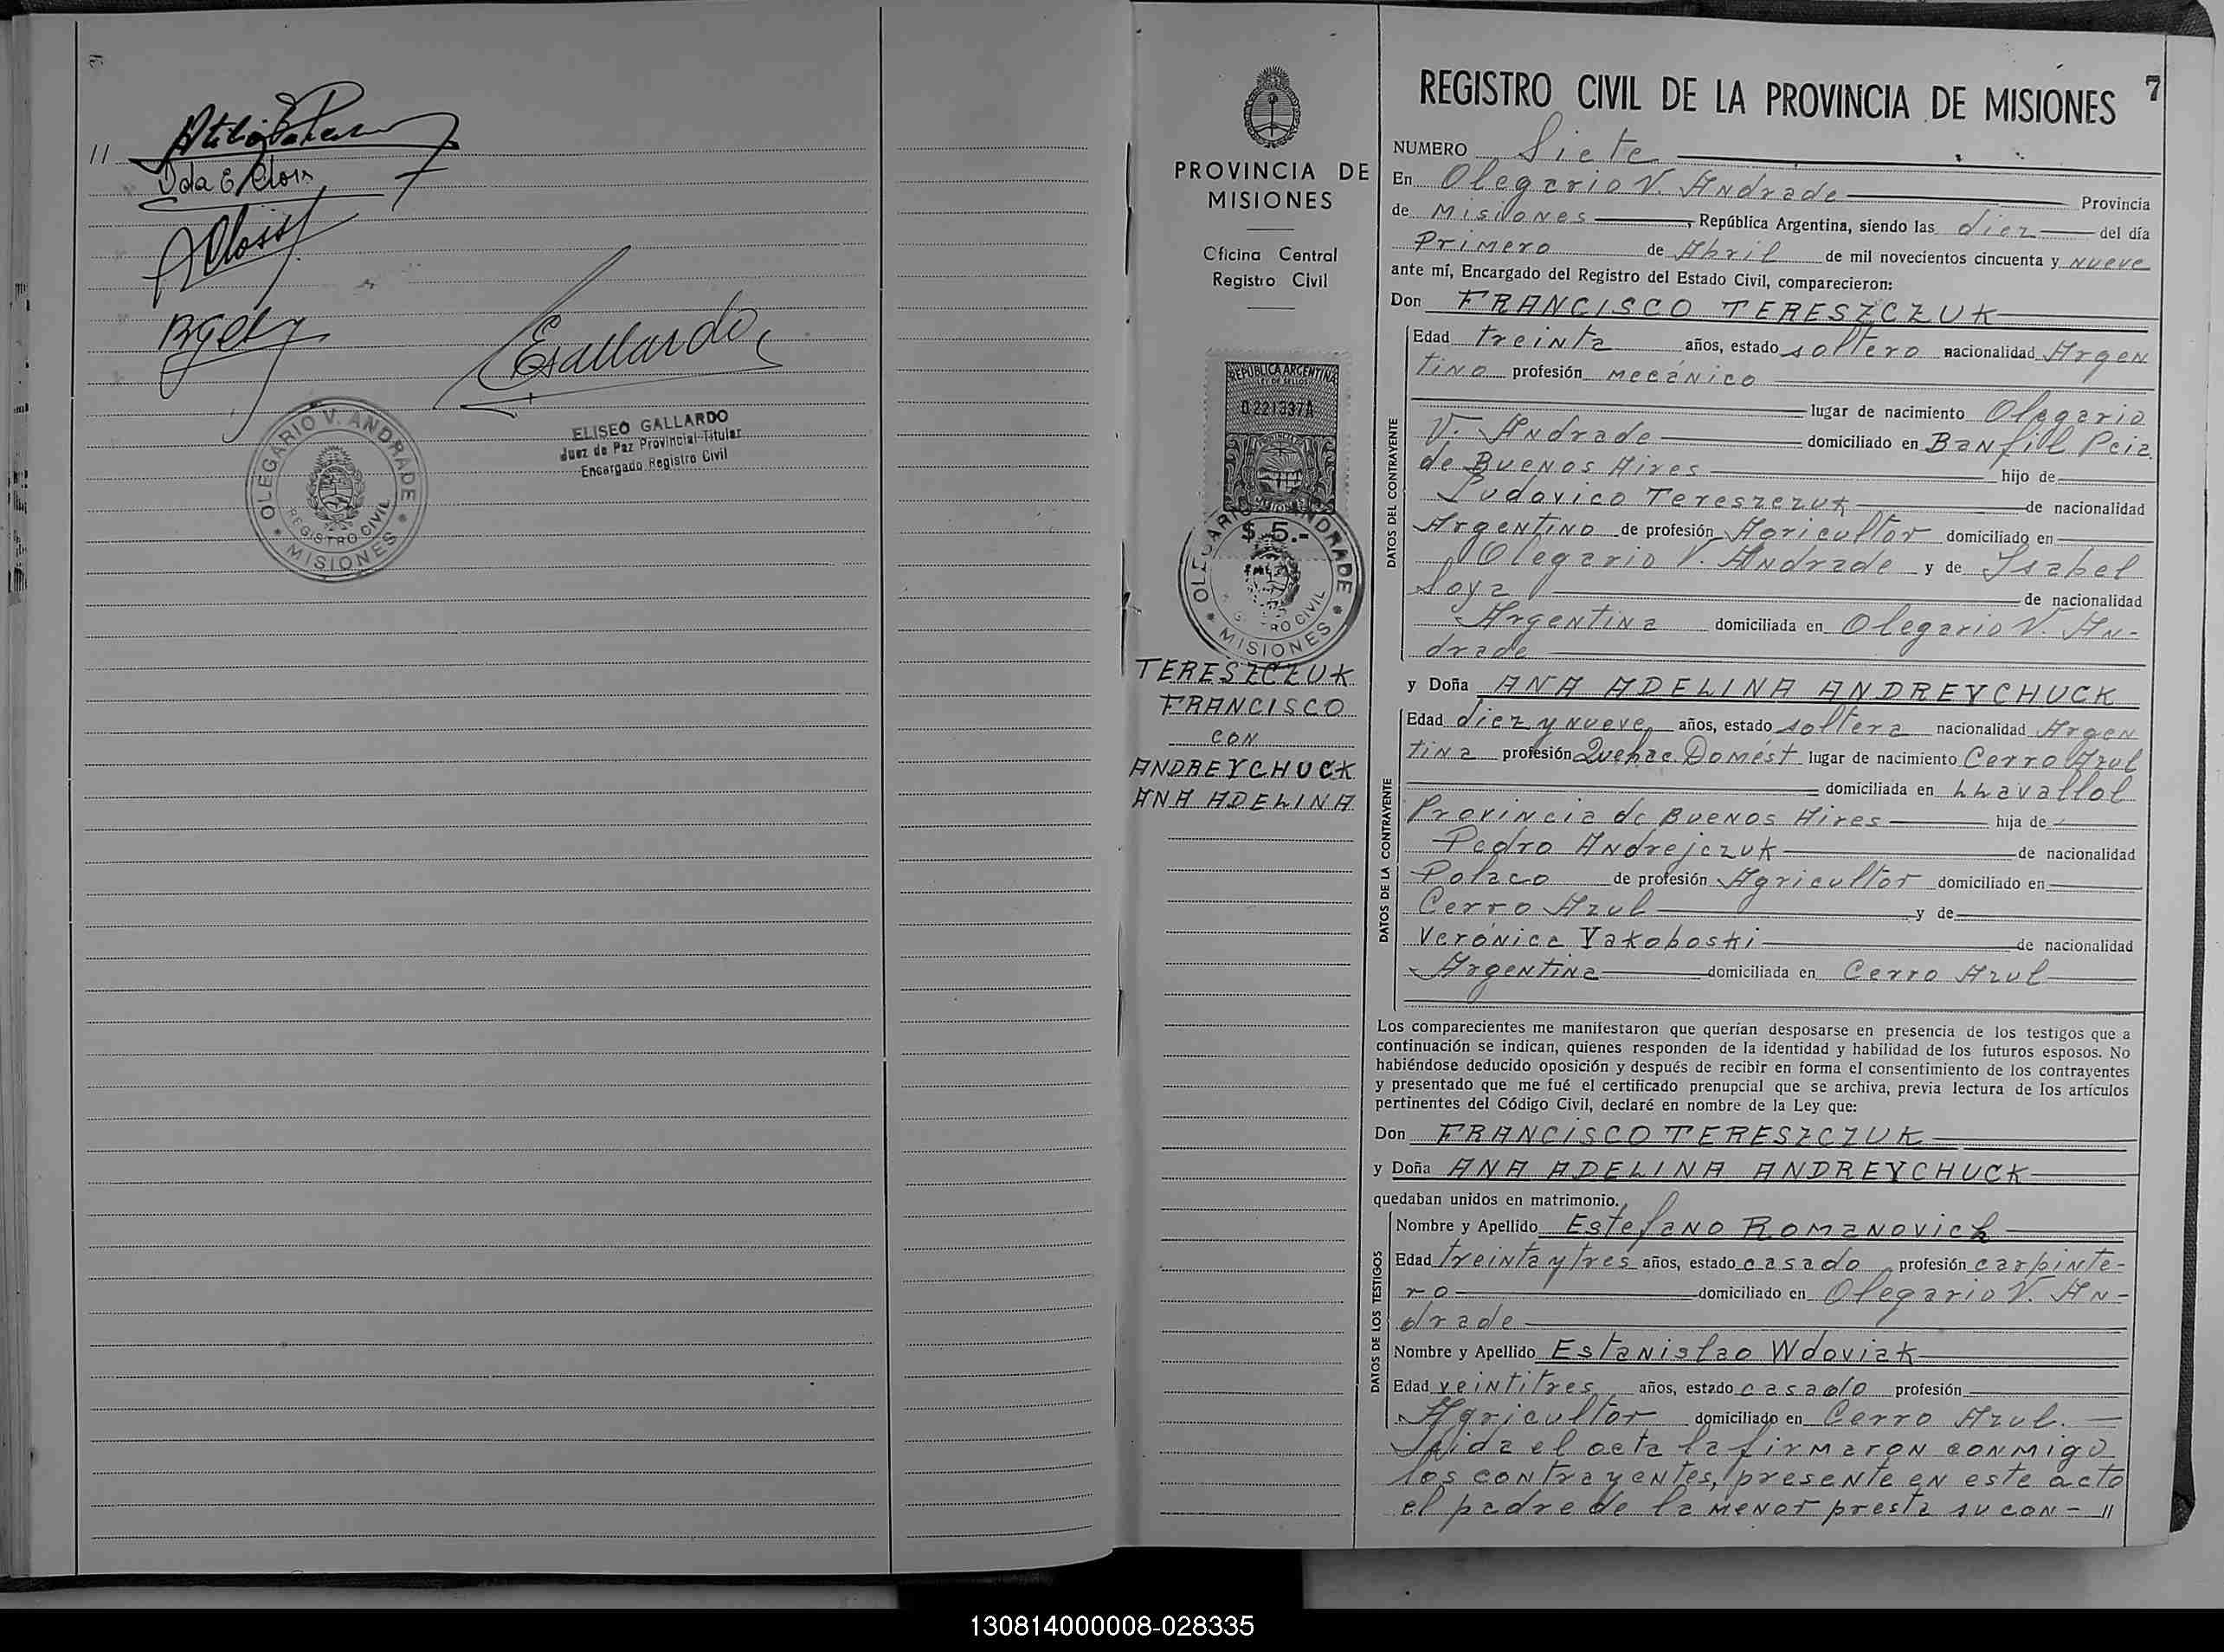 11
Ida E. Closs
ACloss
OLEGARIO V. ANDRADE
REGISTRO CIVIL
* MISIONES *
EGallardo
ELISEO GALLARDO
Juez de Paz Provincial Titular
Encargado Registro Civil
PROVINCIA DE
MISIONES
Oficina Central
Registro Civil
REPUBLICA ARGENTINA
LEY DE SELLOS
0.221337A
$ 5.-
OLEGARIO V. ANDRADE
REGISTRO CIVIL
* MISIONES *
TERESZCZUK
FRANCISCO
CON
ANDREYCHUCK
ANA ADELINA
7
REGISTRO CIVIL DE LA PROVINCIA DE MISIONES
NUMERO Siete
En Olegario V. Andrade Provincia
de Misiones, República Argentina, siendo las diez del día
Primero de Abril de mil novecientos cincuenta y nueve
ante mí, Encargado del Registro del Estado Civil, comparecieron:
Don FRANCISCO TERESZCZUK
DATOS DEL CONTRAYENTE
Edad treinta años, estado soltero nacionalidad Argen
tino profesión mecánico
lugar de nacimiento Olegario
V. Andrade domiciliado en Banfill Pcia.
de Buenos Aires hijo de
Ludovico Tereszczuk de nacionalidad
Argentino de profesión Agricultor domiciliado en
Olegario V. Andrade y de Isabel
Soya de nacionalidad
Argentina domiciliada en Olegario V. An-
drade
y Doña ANA ADELINA ANDREYCHUCK
DATOS DE LA CONTRAYENTE
Edad diez y nueve años, estado soltera nacionalidad Argen
tina profesión Quehac. Domést lugar de nacimiento Cerro Azul
domiciliada en Llavallol
Provincia de Buenos Aires hija de
Pedro Andrejczuk de nacionalidad
Polaco de profesión Agricultor domiciliado en
Cerro Azul y de
Verónica Yakoboski de nacionalidad
Argentina domiciliada en Cerro Azul
Los comparecientes me manifestaron que querían desposarse en presencia de los testigos que a
continuación se indican, quienes responden de la identidad y habilidad de los futuros esposos. No
habiéndose deducido oposición y después de recibir en forma el consentimiento de los contrayentes
y presentado que me fué el certificado prenupcial que se archiva, previa lectura de los artículos
pertinentes del Código Civil, declaré en nombre de la Ley que:
Don FRANCISCO TERESZCZUK
y Doña ANA ADELINA ANDREYCHUCK
quedaban unidos en matrimonio.
DATOS DE LOS TESTIGOS
Nombre y Apellido Estefano Romanovich
Edad treinta y tres años, estado casado profesión carpinte-
ro domiciliado en Olegario V. An-
drade
Nombre y Apellido Estanislao Wdoviak
Edad veintitres años, estado casado profesión
Agricultor domiciliado en Cerro Azul.
Leida el acta la firmaron conmigo
los contrayentes, presente en este acto
el padre de la menor presta su con- //
130814000008-028335